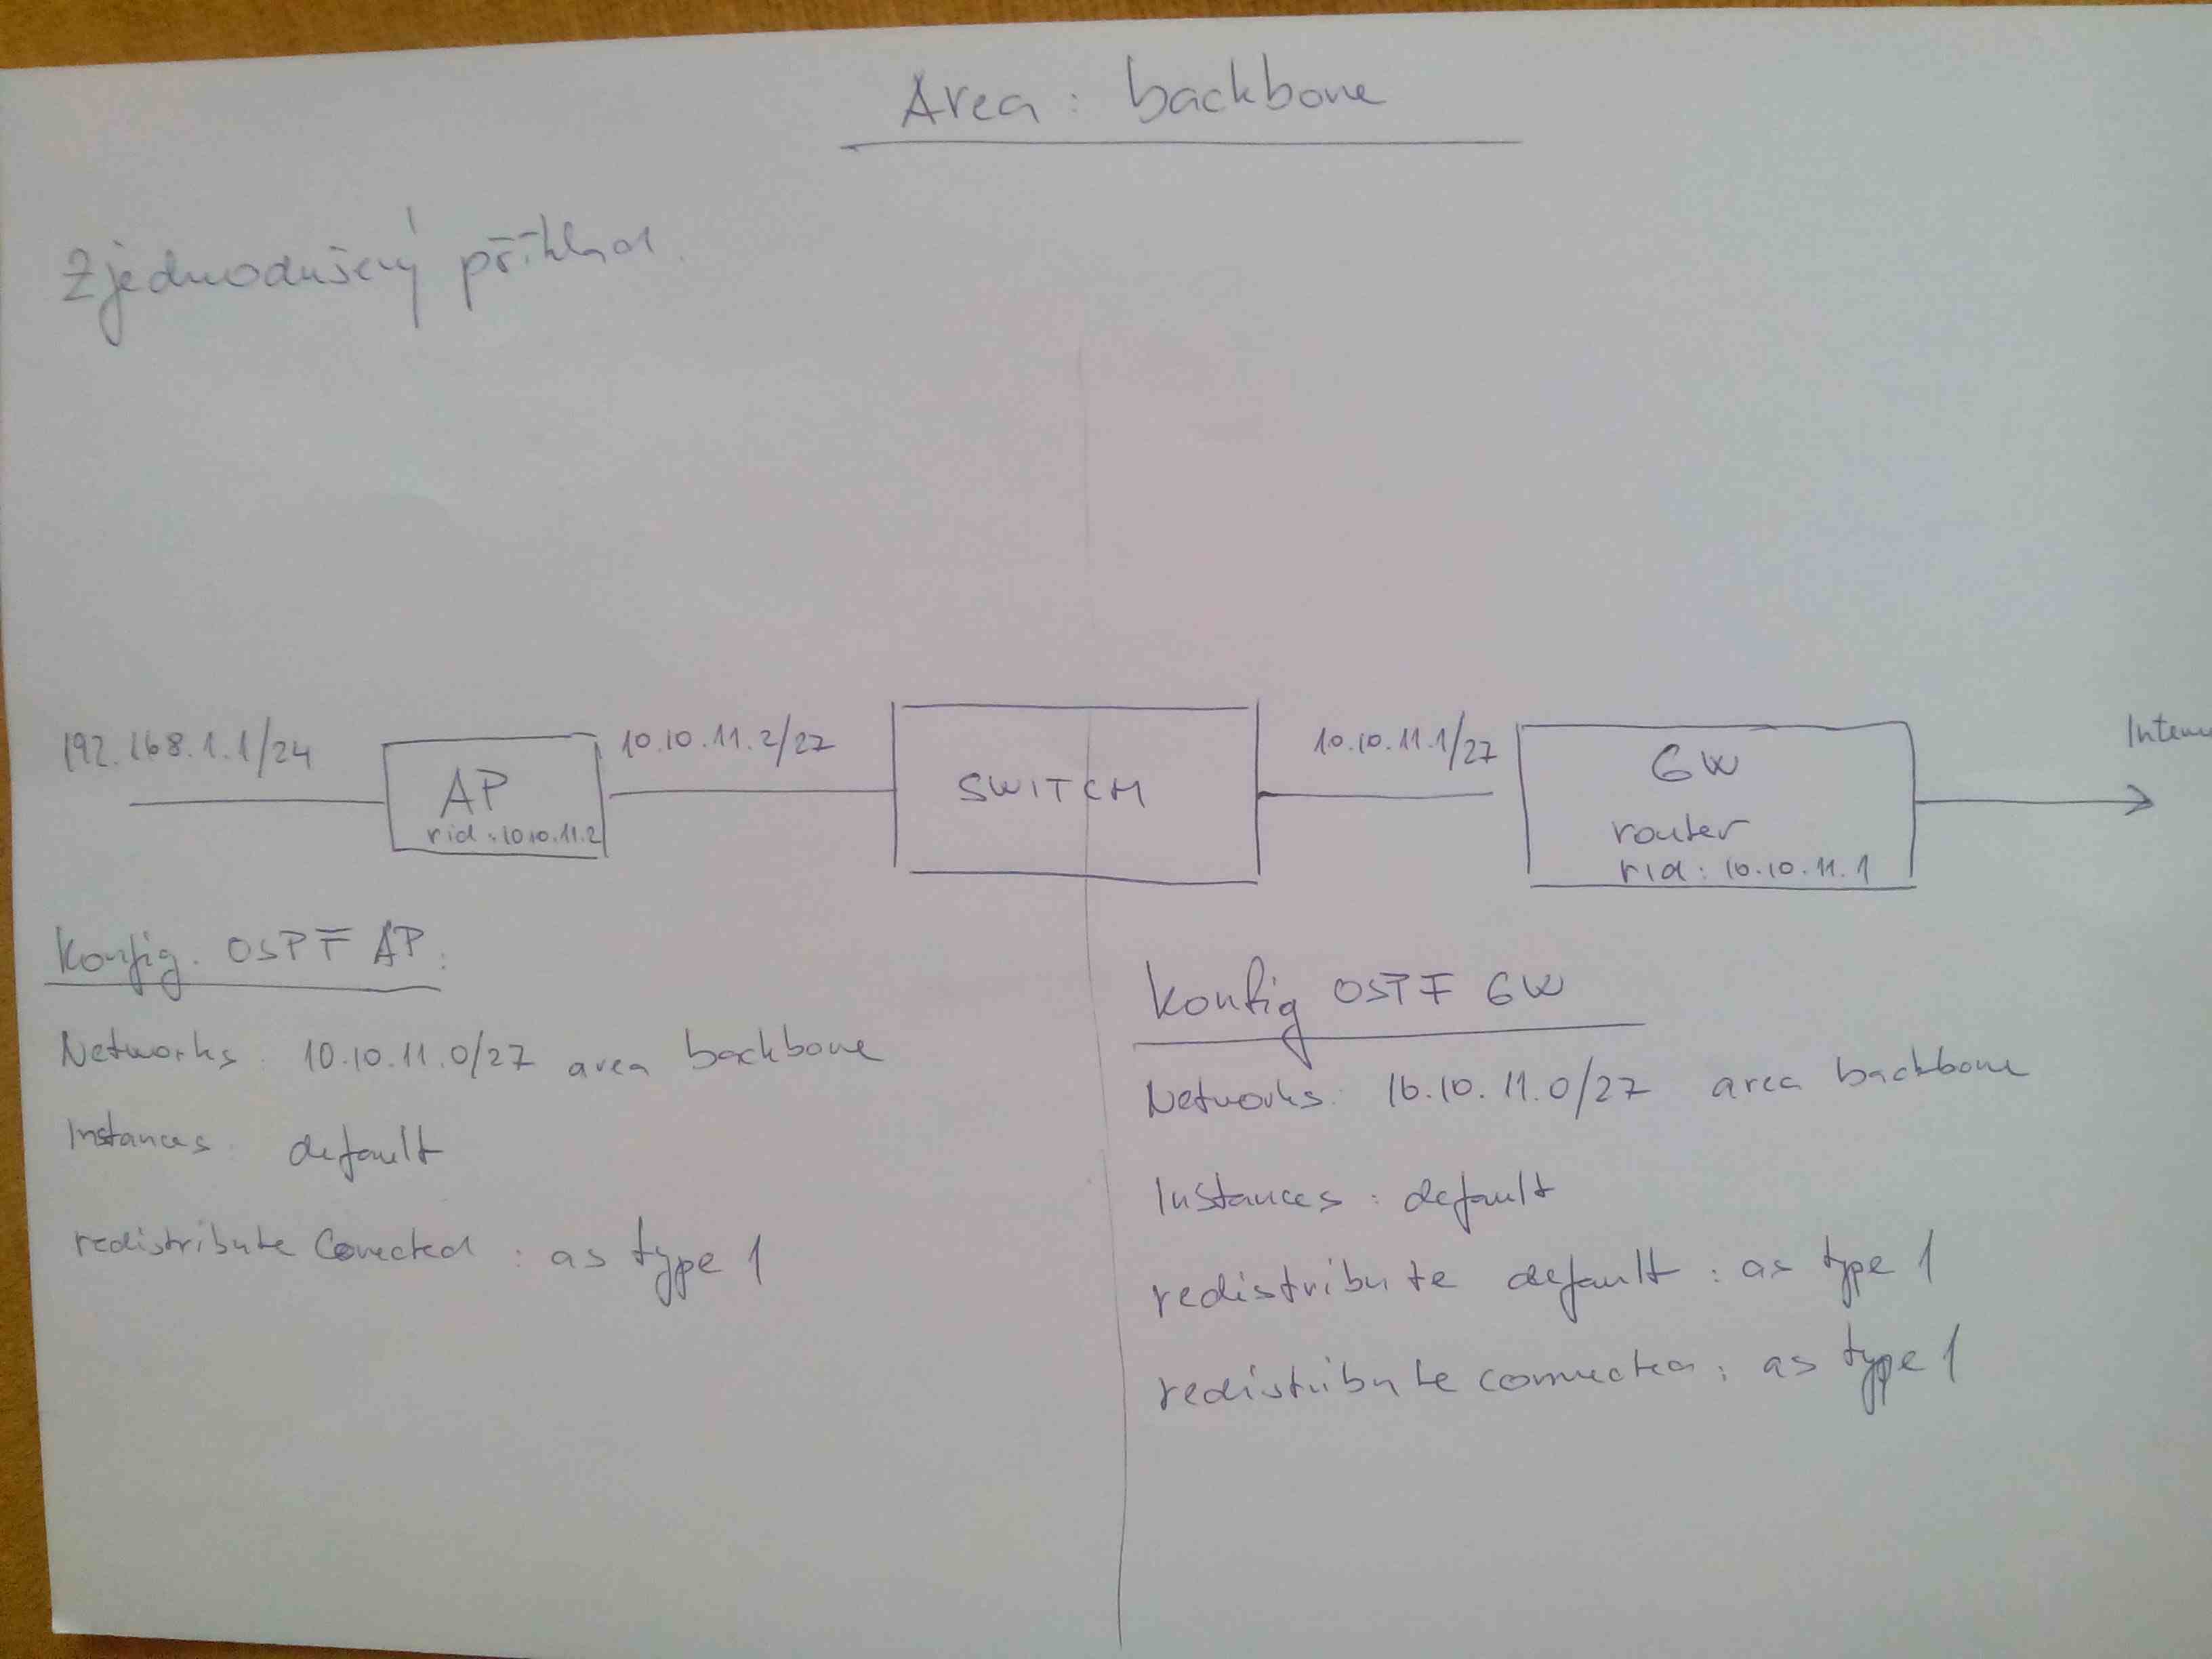 Area : backbone
Zjednodušený příklad.
192.168.1.1/24
10.10.11.2/27
10.10.11.1/27
AP
rid: 10.10.11.2
SWITCH
GW
router
rid: 10.10.11.1
Konfig. OSPF AP:
Networks: 10.10.11.0/27 area backbone
Instances: default
redistribute Conected : as type 1
Konfig OSPF GW
Networks: 10.10.11.0/27 area backbone
Instances : default
redistribute default : as type 1
redistribute connected : as type 1